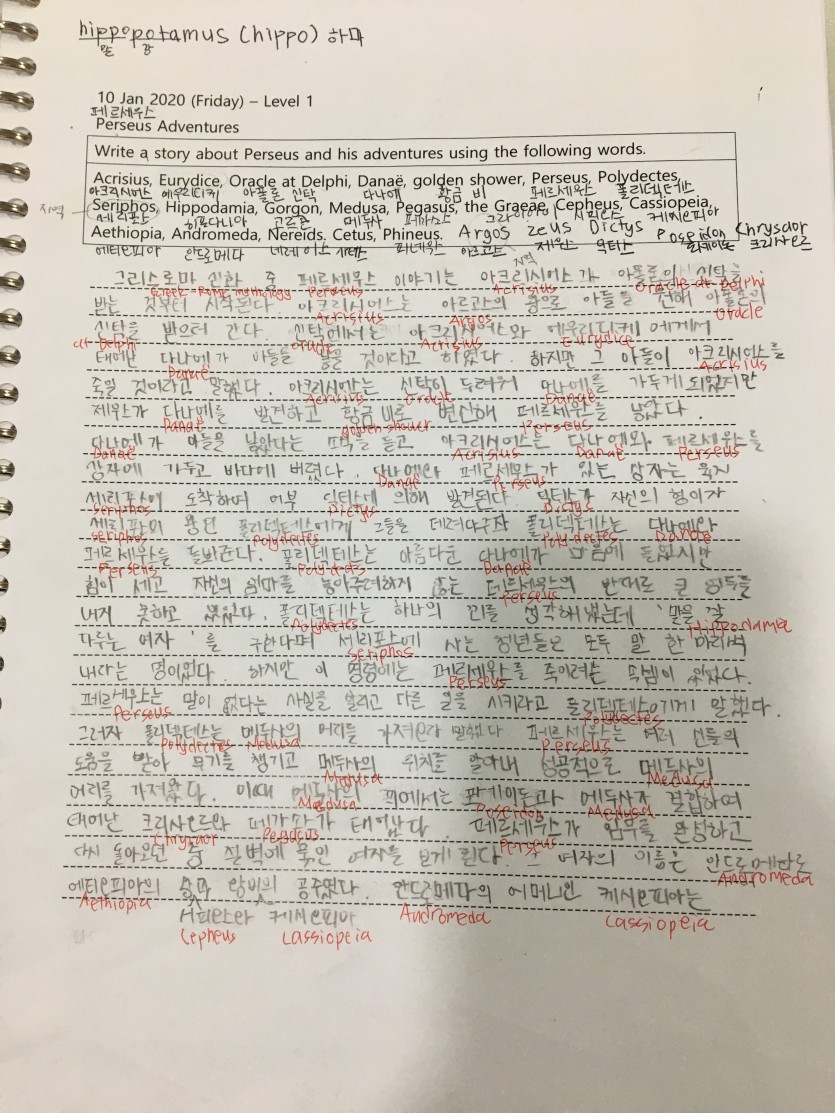 hippopotamus (hippo) 하마
말 강
10 Jan 2020 (Friday) – Level 1
페르세우스
Perseus Adventures
Write a story about Perseus and his adventures using the following words.
Acrisius, Eurydice, Oracle at Delphi, Danaë, golden shower, Perseus, Polydectes,
아크리시어스 에우리디케 아폴론 신탁 다나에 황금 비 페르세우스 폴리덱테스
지역 Seriphos, Hippodamia, Gorgon, Medusa, Pegasus, the Graeae, Cepheus, Cassiopeia,
세리포스 히포다미아 고르곤 메두사 페가소스 케시오피아
Aethiopia, Andromeda, Nereids. Cetus, Phineus. Argos Zeus Dictys Poseidon Chrysaor
에티오피아 안드로메다 네레이스 피네우스 아르고스 제우스 딕티스 크리사오르
지역
그리스로마 신화 중 페르세우스 이야기는 아크리시어스가 아폴론의 신탁을
Greek-Rome mythology Perseus Acrisius Oracle at Delphi
받는 것부터 시작된다. 아크리시어스는 아르고스의 왕으로 아들을 원해 아폴론의
Acrisius Argos Oracle
신탁을 받으러 간다. 신탁에서는 아크리시어스와 에우리디케에게서
at Delphi oracle Acrisius Eurydice
태어난 다나에가 아들을 낳을 것이라고 하였다. 하지만 그 아들이 아크리시어스를
Danaë Acrisius
죽일 것이라고 말했다. 아크리시어스는 신탁이 두려워 다나에를 가두게 되었지만
Acrisius Oracle Danaë
제우스가 다나에를 발견하고 황금 비로 변신해 페르세우스를 낳았다.
Danaë golden shower Perseus
다나에가 아들을 낳았다는 소식을 듣고 아크리시어스는 다나에와 페르세우스를
Danaë Acrisius Danaë Perseus
상자에 가두고 바다에 버렸다. 다나에와 페르세우스가 있는 상자는 육지
Danaë Perseus
세리포스에 도착하여 어부 딕티스에 의해 발견된다. 딕티스가 자신의 형이자
Seriphos Dictys Dictys
세리포스의 왕인 폴리덱테스에게 그들을 데려다주자 폴리덱테스는 다나에와
Seriphos Polydectes Polydectes Danaë
페르세우스를 돌봐준다. 폴리덱테스는 아름다운 다나에가 마음에 들었지만
Perseus Polydects Danaë
힘이 세고 자신의 엄마를 놓아주려하지 않는 페르세우스의 반대로 큰 엄두를
Perseus
내지 못하고 있었다. 폴리덱테스는 하나의 꾀를 생각해 냈는데 '말을 잘
Polydectes Hippodamia
다루는 여자'를 구한다며 세리포스에 사는 청년들은 모두 말 한 마리씩
Seriphos
내라는 명이었다. 하지만 이 명령에는 페르세우스를 죽이려는 속셈이 있었다.
Perseus
페르세우스는 말이 없다는 사실을 알리고 다른 일을 시키라고 폴리덱테스에게 말했다.
Perseus Polydectes
그러자 폴리덱테스는 메두사의 머리를 가져오라 말했다 페르세우스는 여러 신들의
Polydectes Medusa Perseus
도움을 받아 무기를 챙기고 메두사의 위치를 알아내 성공적으로 메두사의
Medusa Medusa
머리를 가져왔다. 이때 메두사의 피에서는 포세이돈과 메두사가 결합하여
Medusa Poseidon Medusa
태어난 크리사오르와 페가소스가 태어났다 페르세우스가 임무를 완성하고
Chrysaor Pegasus Perseus
다시 돌아오던 중 절벽에 묶인 여자를 보게 된다. 그 여자의 이름은 안드로메다로
Andromeda
에티오피아의 왕과 왕비의 공주였다. 안드로메다의 어머니인 케시오피아는
Aethiopia Andromeda Cassiopeia
케시오피아
Cepheus Cassiopeia